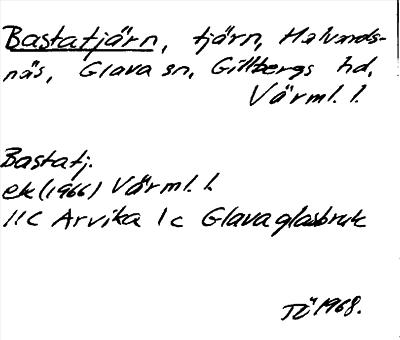 Bastatjärn, tjärn, Halvards-
näs, Glava sn, Gillbergs hd,
Värml. l.
Bastatj.
ek (1966) Värml. l.
11C Arvika 1c Glava glasbruk
TÖ 1968.